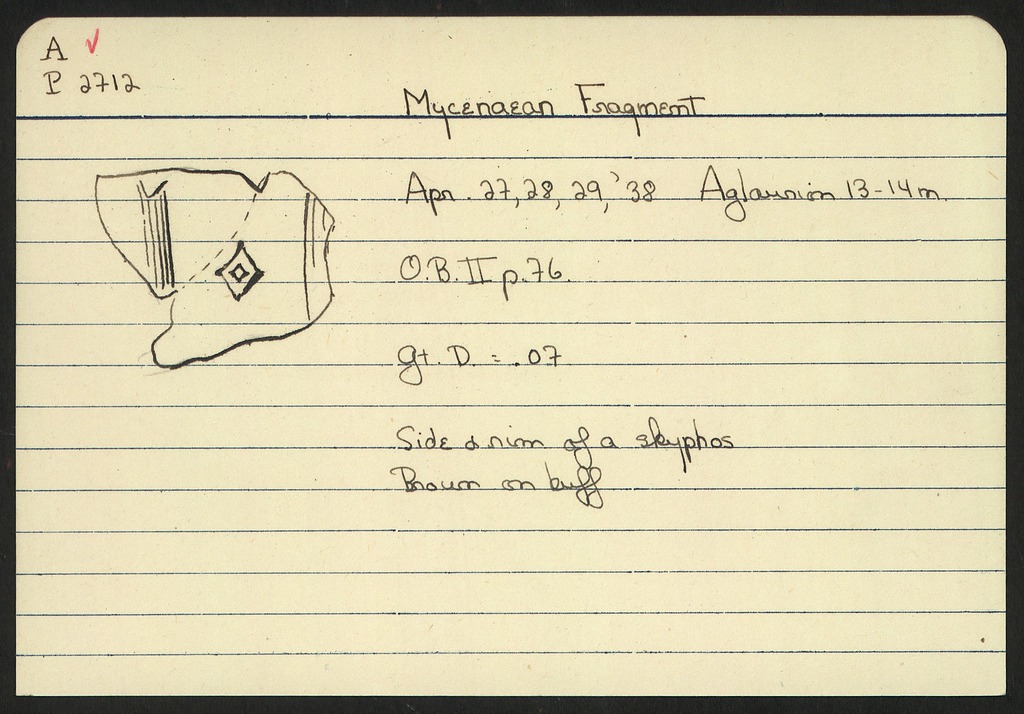 A
P 2712
Mycenaean Fragment
Apr. 27, 28, 29, '38 Aglaurion 13-14 m.
O.B. II p. 76.
Gt. D. = .07
Side & rim of a skyphos
Brown on buff